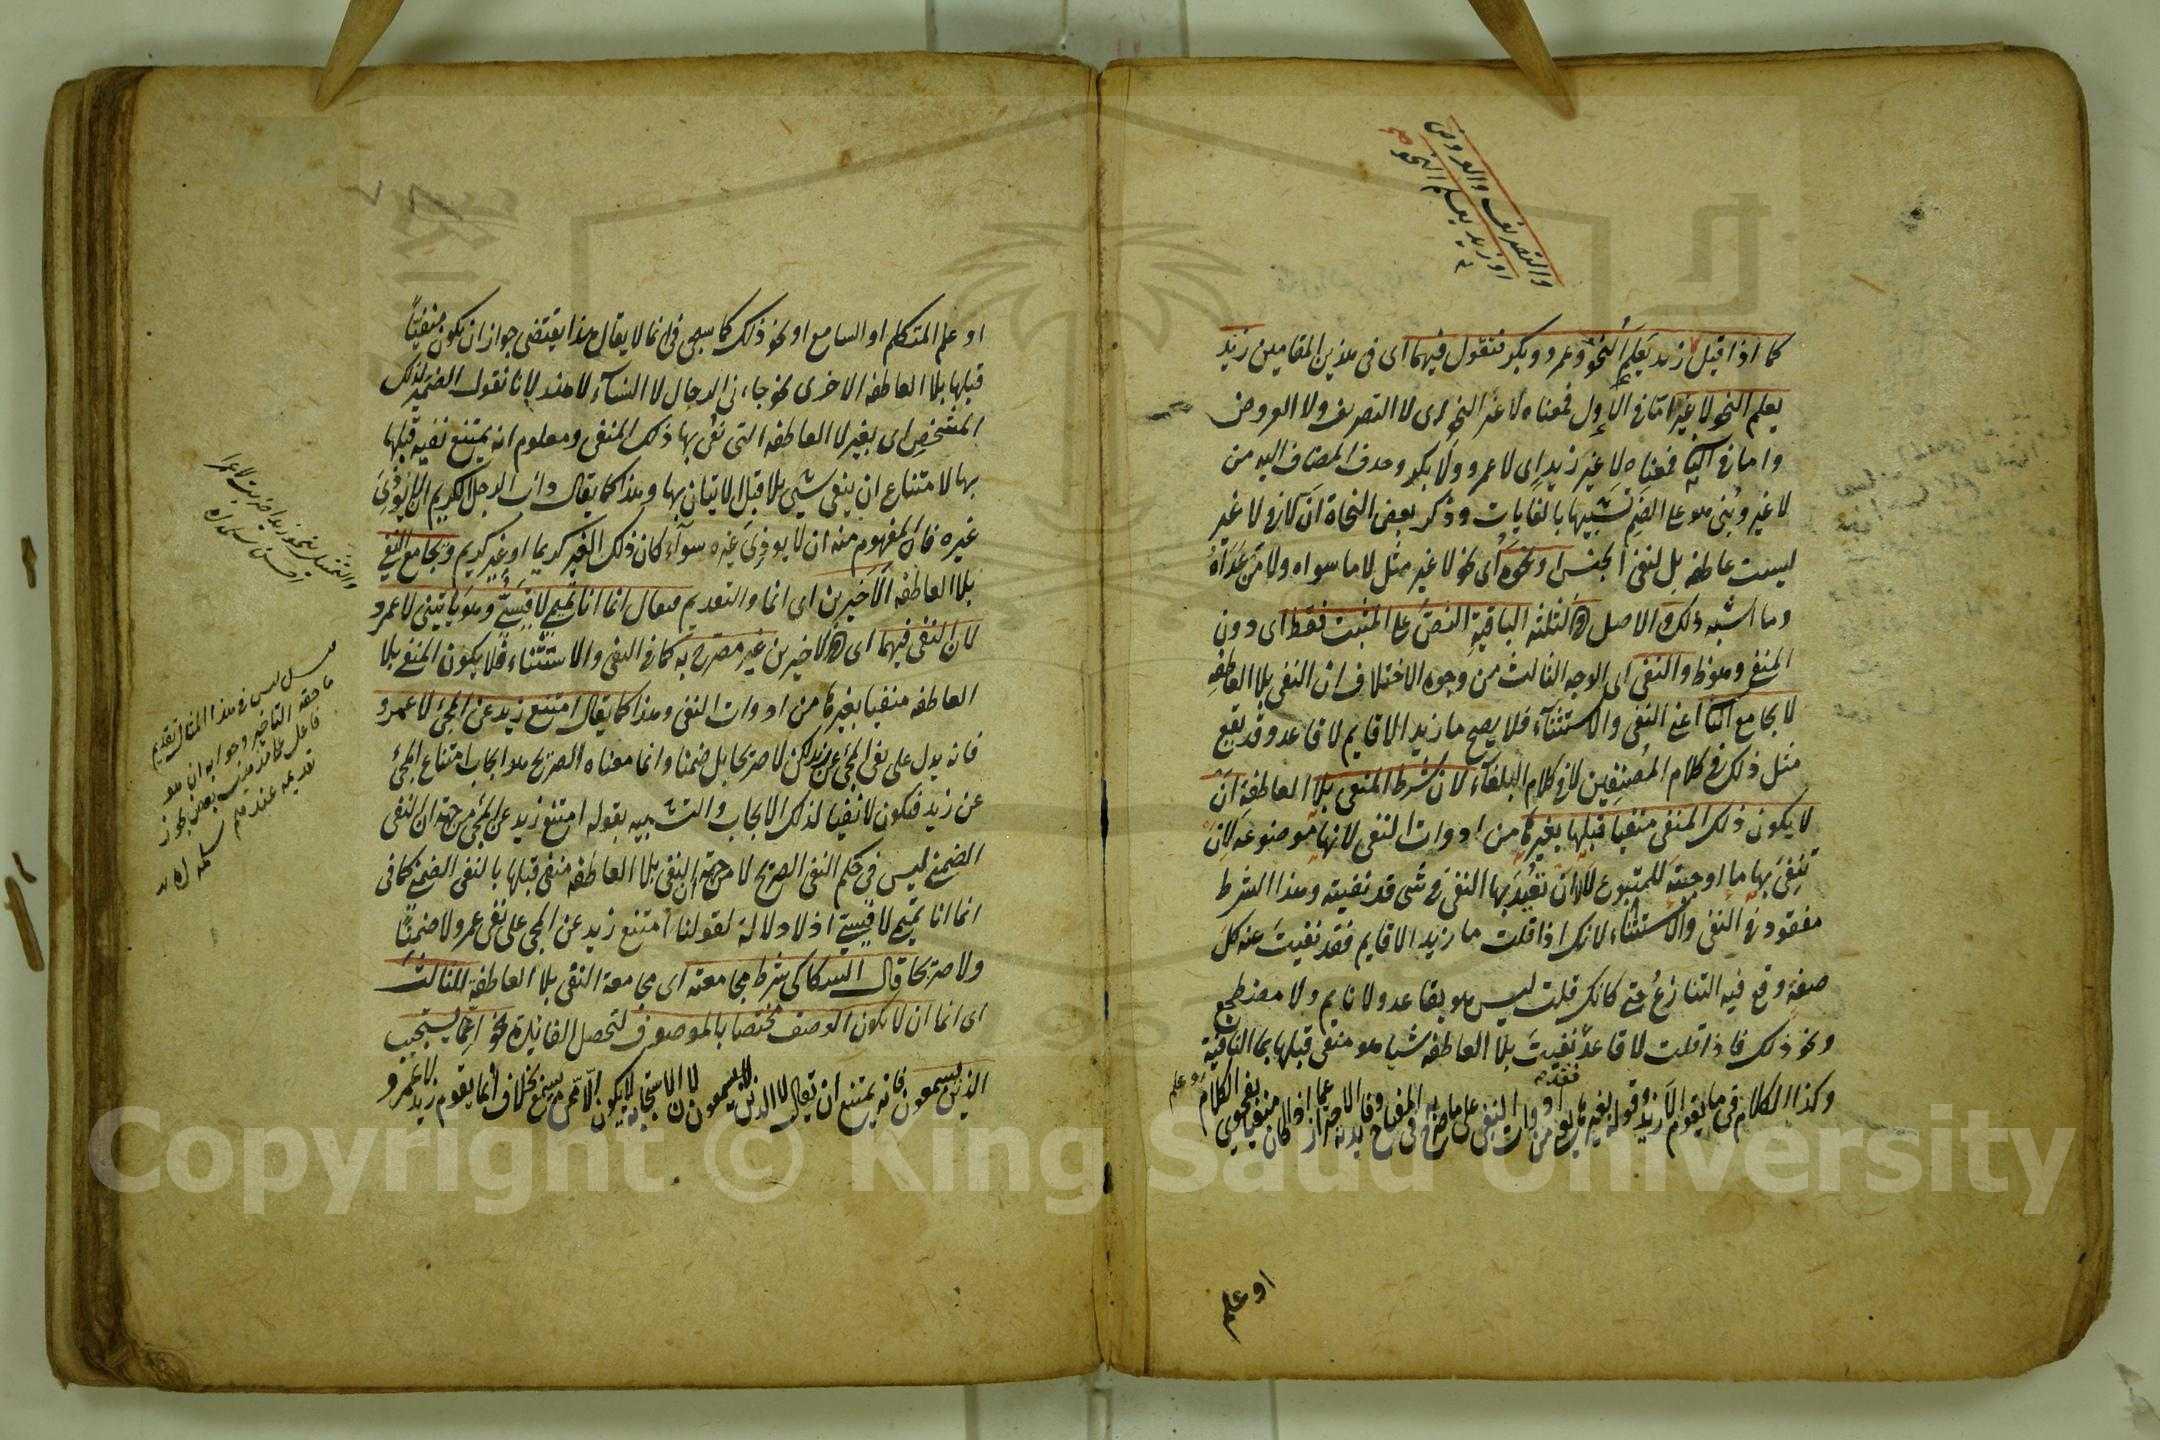 والتصريف والعروض
او زيد يعلم النحو
كما اذا قيل زيد يعلم النحو وعمرو وبكر فتقول فيهما اى فى هذين المقامين زيد
يعلم النحو لا غير اما فى الاول فمعناه لا غير النحو اى لا التصريف ولا العروض
واما فى الثانى فمعناه لا غير زيد اى لا عمرو ولا بكر وحذف المضاف اليه من
لا غير وبنى هو على الضم تشبيها بالغايات وذكر بعض النحاة ان لا فى لا غير
ليست عاطفة بل لنفى الجنس او نحوه اى نحو لا غير مثل لا ما سواه ولا من عداه
وما اشبه ذلك والاصل فى الثلثة الباقية النص على المثبت فقط اى دون
المنفى وهو ظ والنفى اى الوجه الثالث من وجوه الاختلاف ان النفى بلا العاطفة
لا يجامع الثانى اعنى النفى والاستثناء فلا يصح ما زيد الا قايم لا قاعد وقد يقع
مثل ذلك فى كلام المصنفين لا فى كلام البلغاء لان شرط المنفى بلا العاطفة ان
لا يكون ذلك المنفى منفيا قبلها بغيرها من ادوات النفى لانها موضوعة لان
تنفى بها ما اوجبته للمتبوع لا لان تفيد بها النفى فى شى قد نفيته وهذا الشرط
مفقود فى النفى والاستثناء لانك اذا قلت ما زيد الا قايم فقد نفيت عنه كل
صفة وقع فيه التنازع حتى كانك قلت ليس هو بقاعد ولا نايم ولا مضطجع
ونحو ذلك فاذا قلت لا قاعد نفيت بلا العاطفة شيا هو منفى قبلها بما النافية
وكذا الكلام فى ما يقوم الا زيد وقوله بغيرها يعنى من ادوات النفى على ما صرح به فى المفتاح وفائدته الاحتراز عما اذا كان منفيا بفحوى الكلام
او علم
او علم المتكلم او السامع او نحو ذلك كما سيجى فى انما لا يقال هذا يقتضى جواز ان يكون منفيا
قبلها بلا العاطفة الاخرى نحو جاءنى الرجال لا النساء لا هند لانا نقول الضمير لذلك
المشخص اى بغير لا العاطفة التى نفى بها ذلك المنفى ومعلوم انه يمتنع نفيه قبلها
بها لامتناع ان ينفى شيى بلا قبل الاتيان بها وهذا كما يقال داب الرجل الكريم ان لا يوذى
غيره فان المفهوم منه ان لا يوذى غيره سواء كان ذلك الغير كريما او غير كريم ويجامع النفى
بلا العاطفة الاخيرين اى انما والتقديم فيقال انما انا تميمى لا قيسى وهو ياتينى لا عمرو
لان النفى فيهما اى فى الاخيرين غير مصرح به كما فى النفى والاستثناء فلا يكون المنفى بلا
العاطفة منفيا بغيرها من ادوات النفى وهذا كما يقال امتنع زيد عن المجئ لا عمرو
فانه يدل على نفى المجئ عن زيد لكن لا صريحا بل ضمنا وانما معناه الصريح هو ايجاب امتناع المجئ
عن زيد فيكون لا نفيا لذلك الايجاب والتشبيه بقوله امتنع زيد عن المجئ من جهة ان النفى
الضمنى ليس فى حكم النفى الصريح لا من جهة ان النفى بلا العاطفة منفى قبلها بالنفى الضمنى كما فى
انما انا تميمى لا قيسى اذ لا دلالة لقولنا امتنع زيد عن المجى على نفى عمرو لا ضمنا
ولا صريحا قال السكاكى شرط مجامعته اى مجامعة النفى بلا العاطفة للثالث
اى انما ان لا يكون الوصف مختصا بالموصوف لتحصل الفائدة نحو انما يستجيب
الذين يسمعون فانه يمتنع ان يقال لا الذين لا يسمعون لان الاستجابة لا يكون الا ممن يسمع بخلاف انما يقوم زيد لا عمرو
والتمثيل بنحو زيدا ضربت لا عمرا
احسن
ليس فى هذا المثال تقديم
ما حقه التاخير وجوابه ان هو